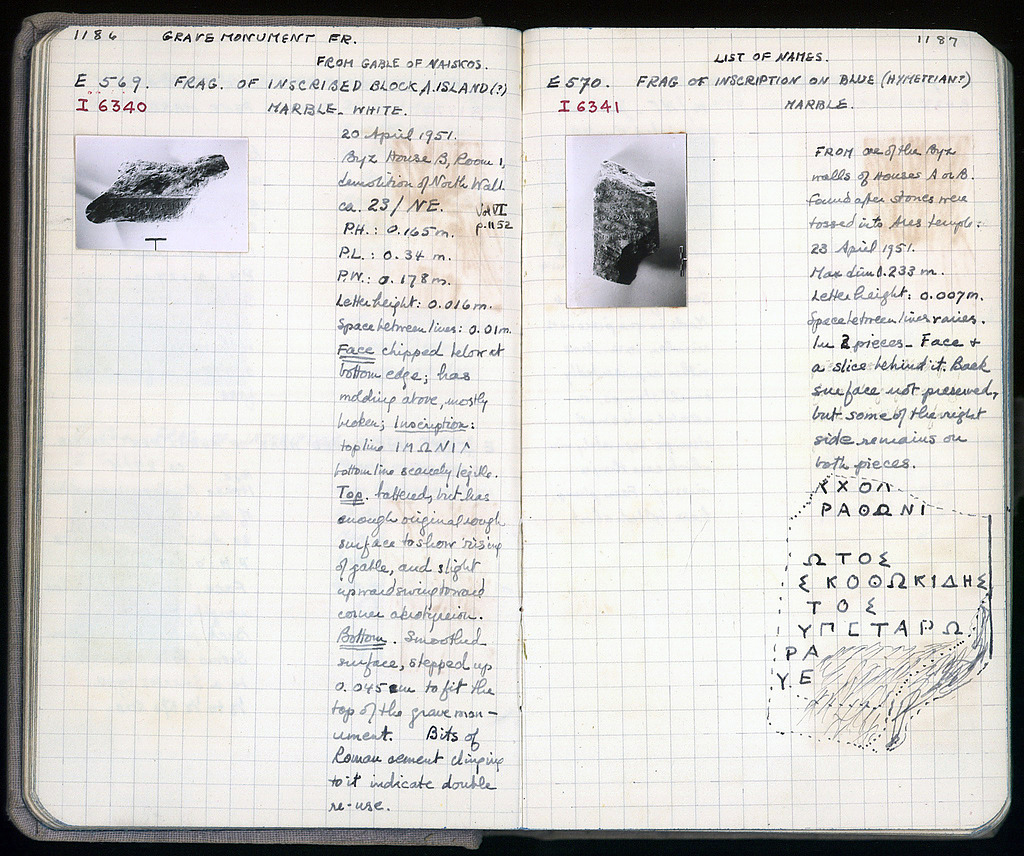 1186 GRAVE MONUMENT FR.
FROM GABLE OF NAISKOS.
E 569. FRAG. OF INSCRIBED BLOCK/1. ISLAND(?)
I 6340 MARBLE. WHITE.
20 April 1951.
Byz House B, Room 1,
demolition of North Wall
ca. 23/NE. Vol VI
P.H.: 0.165m. p.1152
P.L.: 0.34 m.
P.W.: 0.178m.
Letter height: 0.016m.
Space between lines: 0.01m.
Face chipped below at
bottom edge; has
molding above, mostly
broken; Inscription:
top line ΙΜΩΝΙΛ
bottom line scarcely legible.
Top. battered, but has
enough original rough
surface to show rising
of gable, and slight
upward swing toward
corner akroterion.
Bottom. Smoothed
surface, stepped up
0.045 m to fit the
top of the grave mon-
ument. Bits of
Roman cement clinging
to it indicate double
re-use.
1187
LIST OF NAMES.
E 570. FRAG OF INSCRIPTION ON BLUE (HYMETTIAN?)
I 6341 MARBLE.
FROM one of the Byz
walls of Houses A or B.
Found after stones were
tossed into Ares temple:
23 April 1951.
Max dim 0.233 m.
Letter height: 0.007m.
Space between lines varies.
In 2 pieces - Face +
a slice behind it. Back
surface not preserved,
but some of the right
side remains on
both pieces.
ΧΟΛ
ΡΑΘΩΝΙ
ΩΤΟΣ
Σ ΚΟΘΩΚΙΔΗΣ
ΤΟΣ
ΥΠΕΤΑΡΩ
ΡΑ
ΥΕ